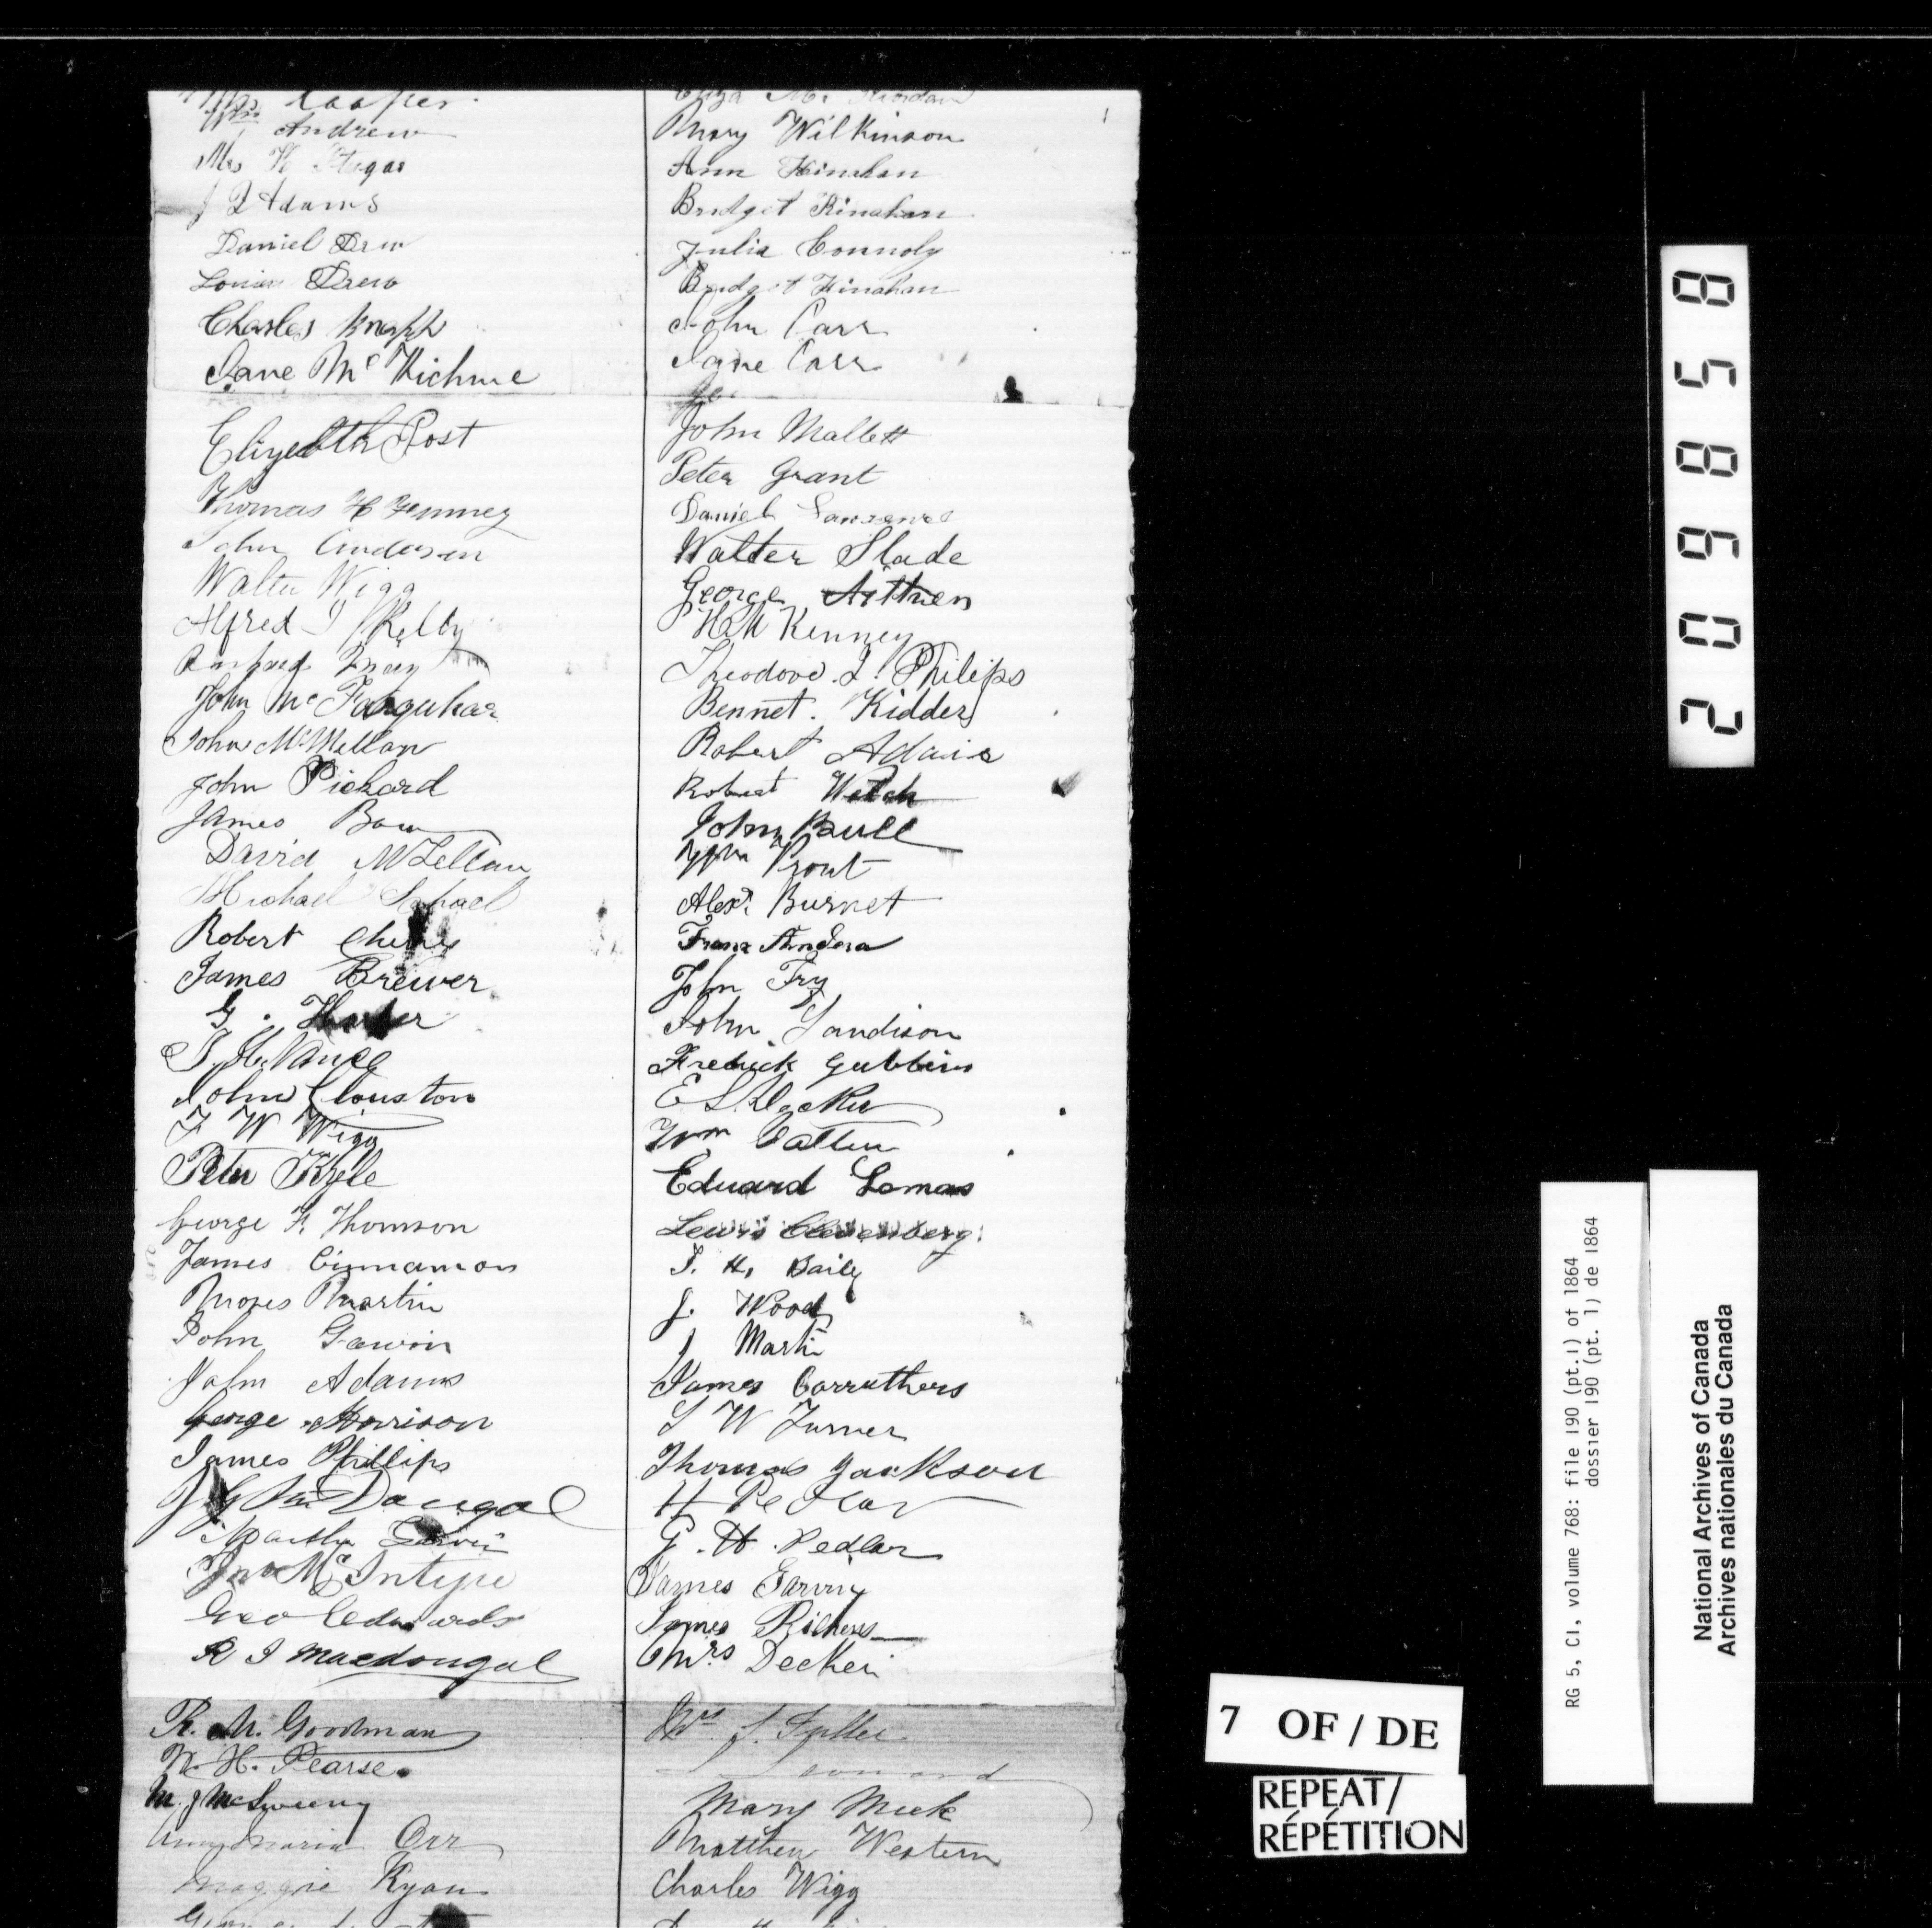 Mrs Cooper
Wm Andrew
Mrs
J Q Adams
Daniel Drew
Louisa Drew
Charles Knapp
Jane McKichme
Elizebth Post
Thomas H Kenney
John Anderson
Walter Wigg
Alfred J Kelby
John McFarquhar
John McMellan
John Pickard
James Bow
David McLellan
Michael
Robert Cherry
James Brewer
G. Harper
J. H. Vance
John Clouston
F W Wigg
Peter Kyle
George F. Thomson
James Cinnamon
Moses Martin
John Gawin
John Adams
George Morrison
James Phillips
J G McDougal
Martha
Jno McIntyre
Geo Edwards
R I Macdougal
R. M. Goodman
W. H. Pearse
M. J McSweeny
Ann Maria Orr
Maggie Ryan
Eliza M. Riordan
Mary Wilkinson
Ann Kinahan
Bridget Kinahan
Julia Connoly
Bridget Kinahan
John Carr
Jane Carr
John Mallett
Peter Grant
Daniel Lawrence
Walter Slade
George Aitken
H M Kenney
Theodore I. Philips
Bennet. Kidder
Robert Adair
Robert Welch
John Bull
Wm Prout
Alexr Burnet
Franz Andera
John Fry
John Sandison
Fredrick Gubbins
E S. Hocker
Wm Patten
Eduard Lomas
Lewis
T. H. Baily
J. Wood
J Martin
James Carruthers
S W Turner
Thomas Jackson
H Pedlar
G. H. Pedlar
James Garvey
James Riches
Mrs Decker
Mrs J. Fuller
Leonard
Mary Meek
Matthew Western
Charles Wigg
2 0 9 8 5 8
RG 5, C1, volume 768: file 190 (pt.1) of 1864
dossier 190 (pt. 1) de 1864
National Archives of Canada
Archives nationales du Canada
7 OF / DE
REPEAT/
RÉPÉTITION